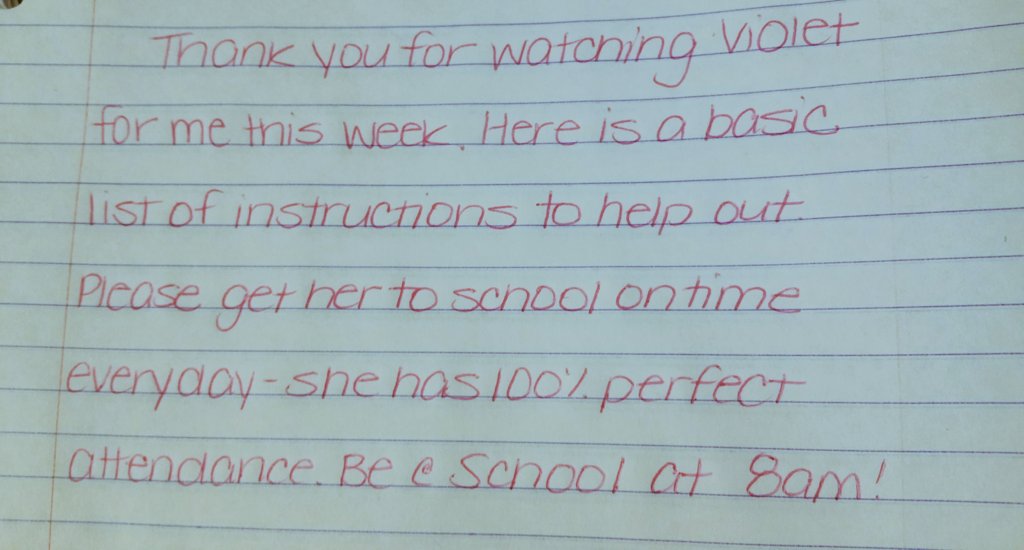 Thank you for watching Violet
for me this week. Here is a basic
list of instructions to help out.
Please get her to school on time
everyday - she has 100% perfect
attendance. Be @ School at 8am!